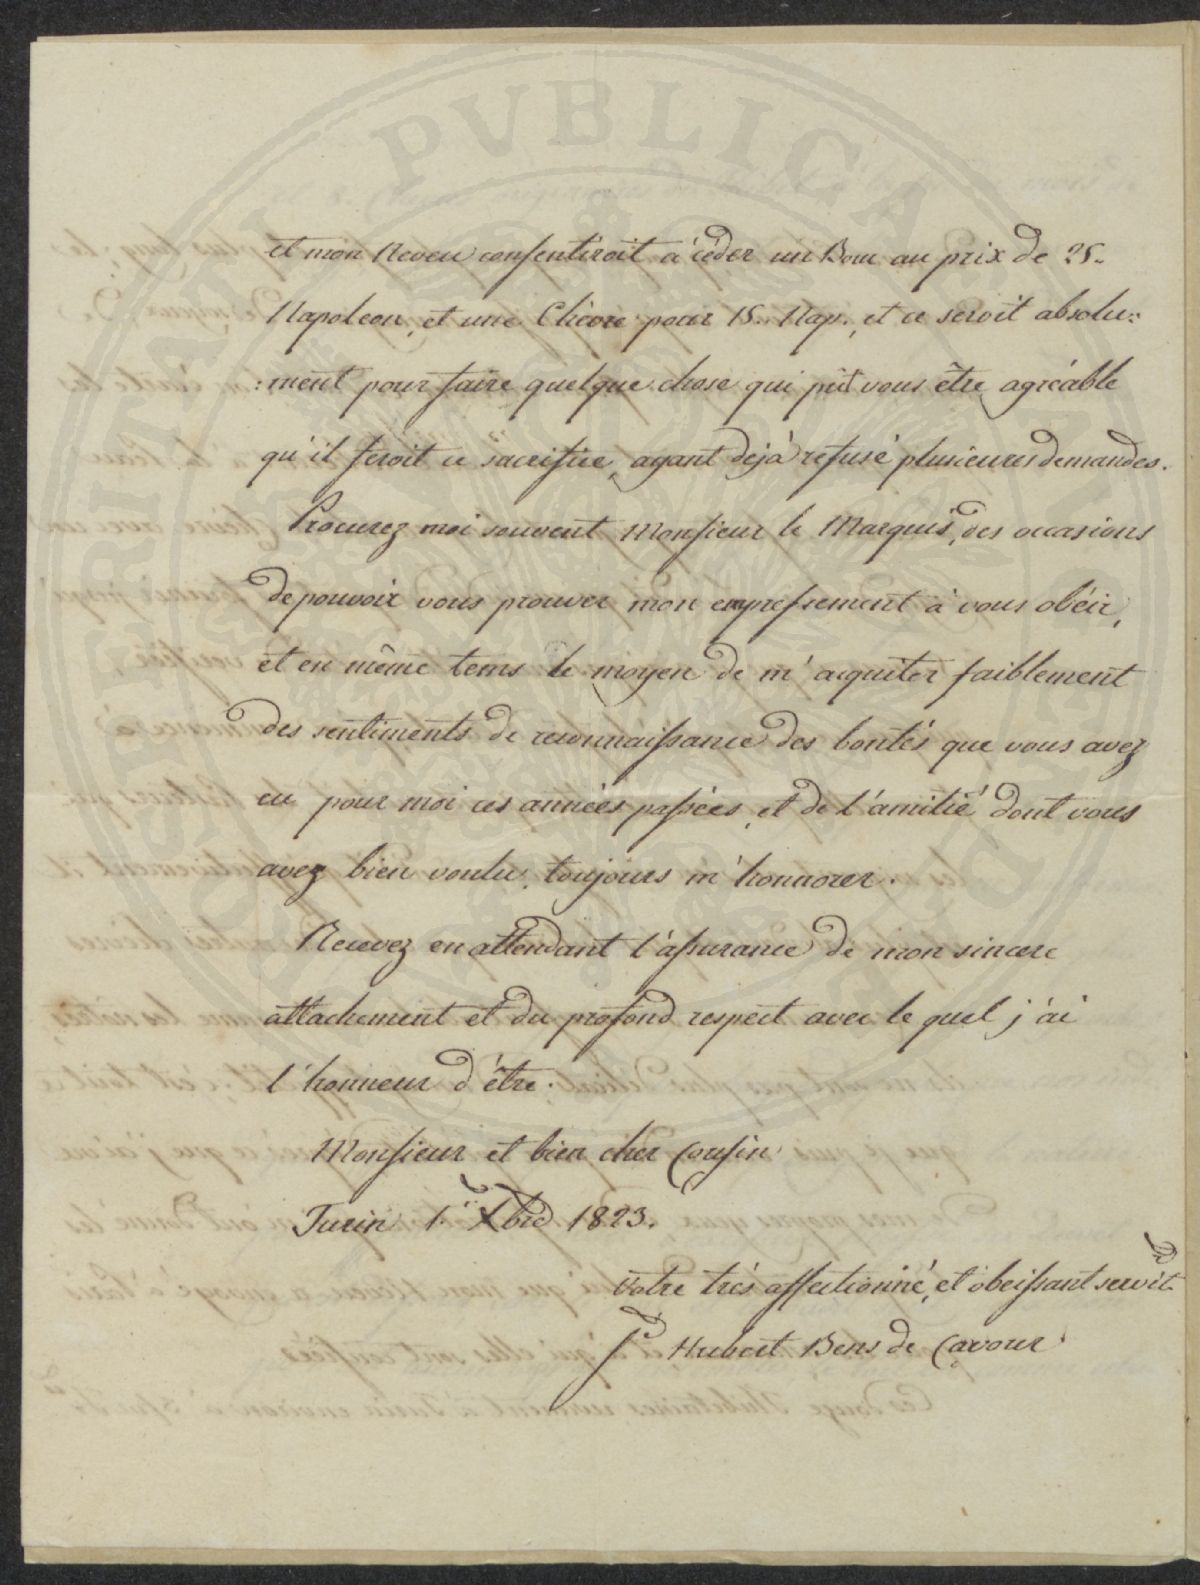 et mon Neveu consentiroit à céder un Bouc au prix de 25.
Napoleon, et une Chèvre pour 15. Nap., et ce seroit absolu=
=ment pour faire quelque chose qui pût vous être agréable
qu'il feroit ce sacrifice, ayant déjà refusé plusieures demandes.
Procurez moi souvent Monsieur le Marquis, des occasions
de pouvoir vous prouver mon empressement à vous obéir,
et en même tems le moyen de m'acquiter faiblement
des sentiments de reconnaissance des bontés que vous avez
eu pour moi ces années passées, et de l'amitié dont vous
avez bien voulu toujours m'honnorer.
Recevez en attendant l'assurance de mon sincere
attachement et du profond respect avec le quel j'ai
l'honneur d'être.
Monsieur et bien cher Cousin
Turin 1.er Xbre 1823.
Votre très affectionné, et obeissant servit.
Hubert Bens de Cavour
PVBLICA